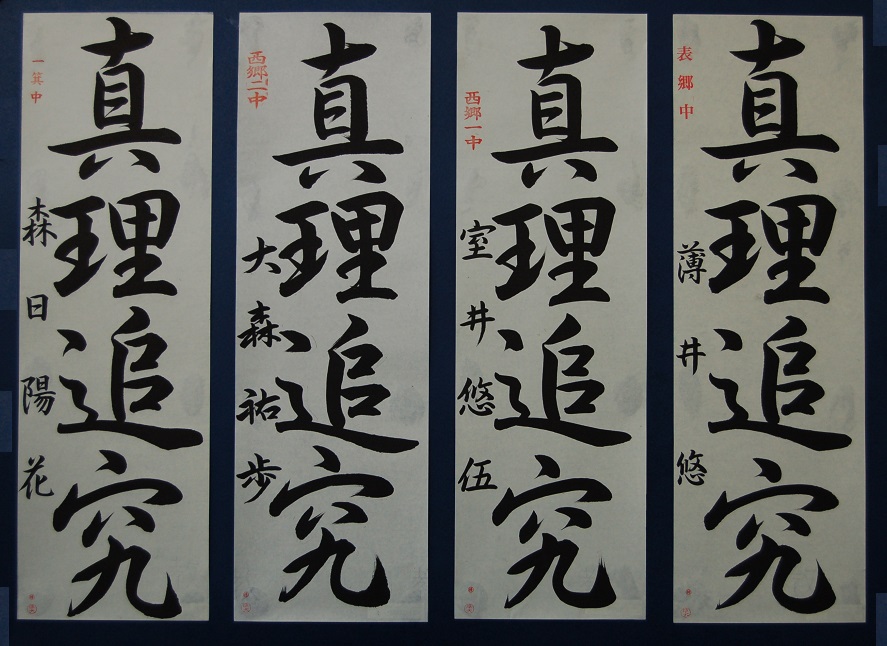 表郷中
真理追究
薄井悠
西郷一中
真理追究
室井悠伍
西郷二中
真理追究
大森祐歩
一箕中
真理追究
森日陽花